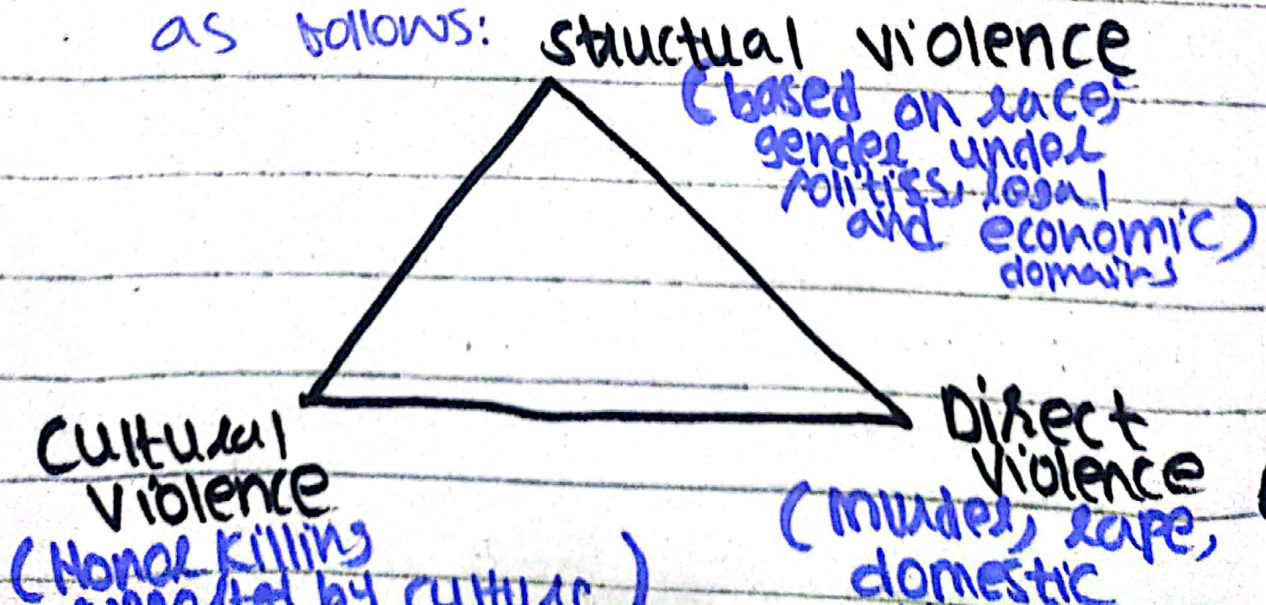 as follows: structual violence
(based on race,
gender under
politiss, legal
and economic)
domains
Cultural
violence
(Honor Killing
supported by culture)
Direct
Violence
(Murder, rape,
domestic